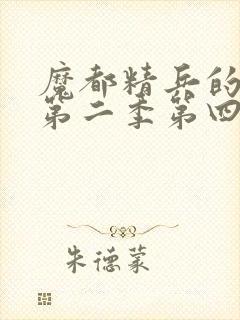 魔都精兵的
第二季第四
朱德蒙